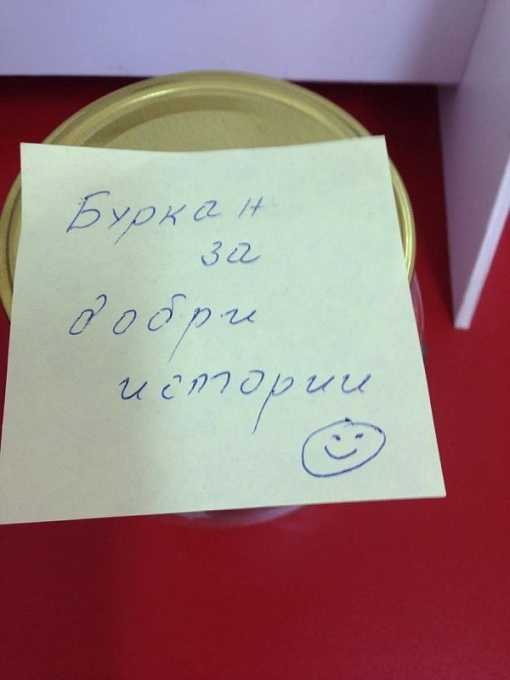 Буркан
за
добри
истории